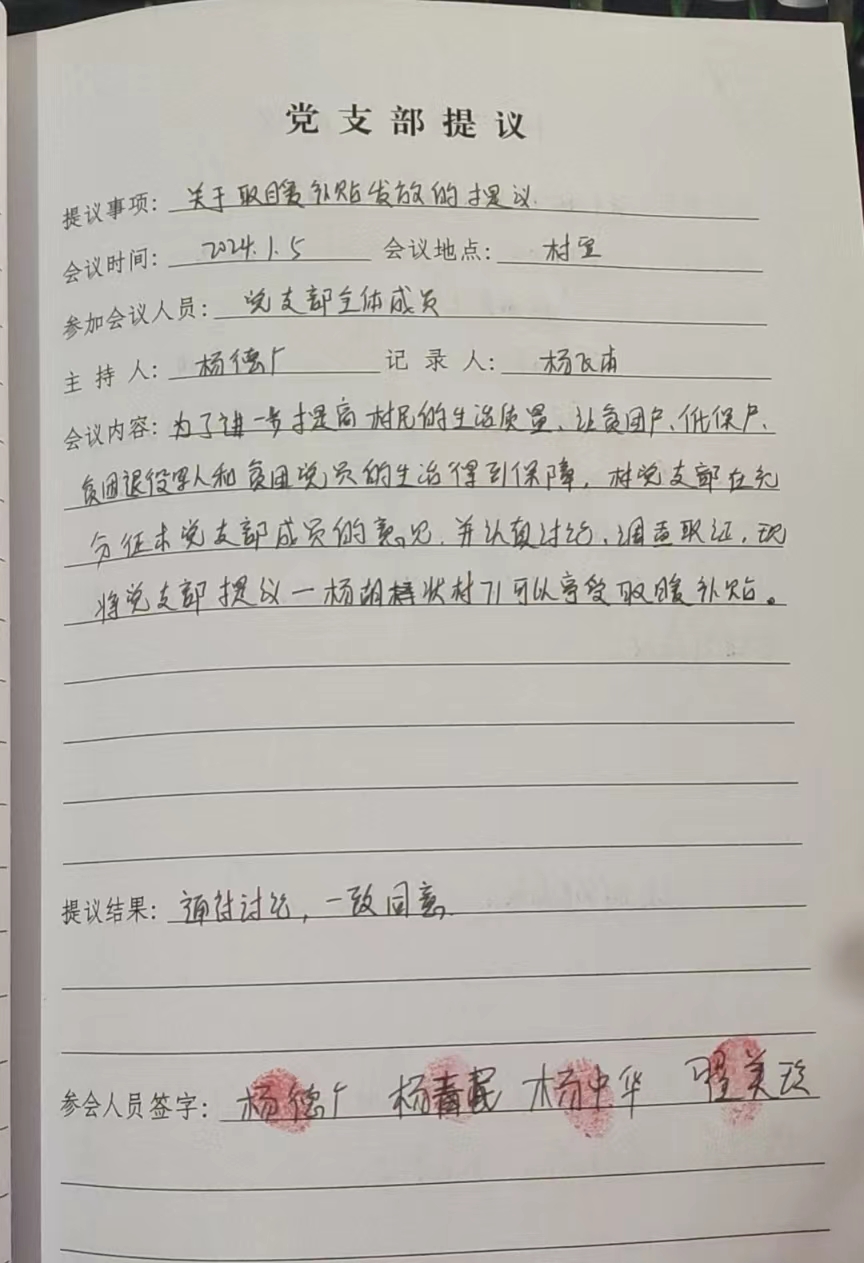 党支部提议
提议事项：关于取暖补贴发放的提议
会议时间：2024.1.5 会议地点：村里
参加会议人员：党支部全体成员
主持人：杨德广 记录人：杨飞
会议内容：为了进一步提高村民的生活质量、让贫困户、低保户、
贫困退役军人和贫困党员的生活得到保障，村党支部在充
分征求党支部成员的意见，并认真讨论，调查取证，现
将党支部提议一杨状村71可以享受取暖补贴。
提议结果：通过讨论，一致同意
参会人员签字：杨德广 杨春民 杨中华 美玲